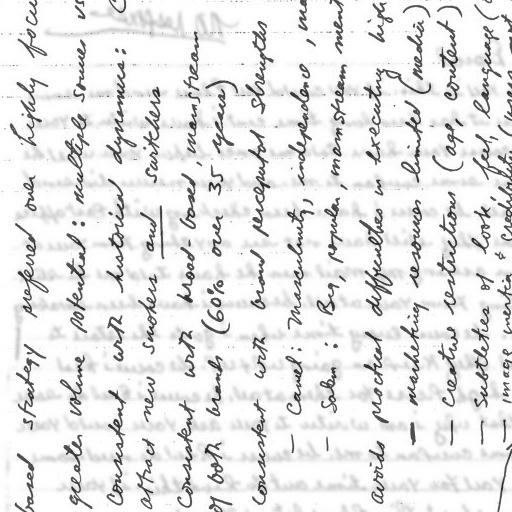 based strategy preferred over highly focu
greater volume potential: multiple sources vs
consistent with historical dynamics: C
attract new smokers and switchers
consistent with broad based, mainstream
of both brands (60% over 35 years)
consistent with brand perceptual strengths
— Camel: masculinity, independence, ma
— Salem: Big, popular, mainstream ment
avoids practical difficulties in executing high
— marketing resources limited (media)
— Creative restrictions (age, content)
— Subtleties of look, feel, language (
— image inertia & credibility (users not